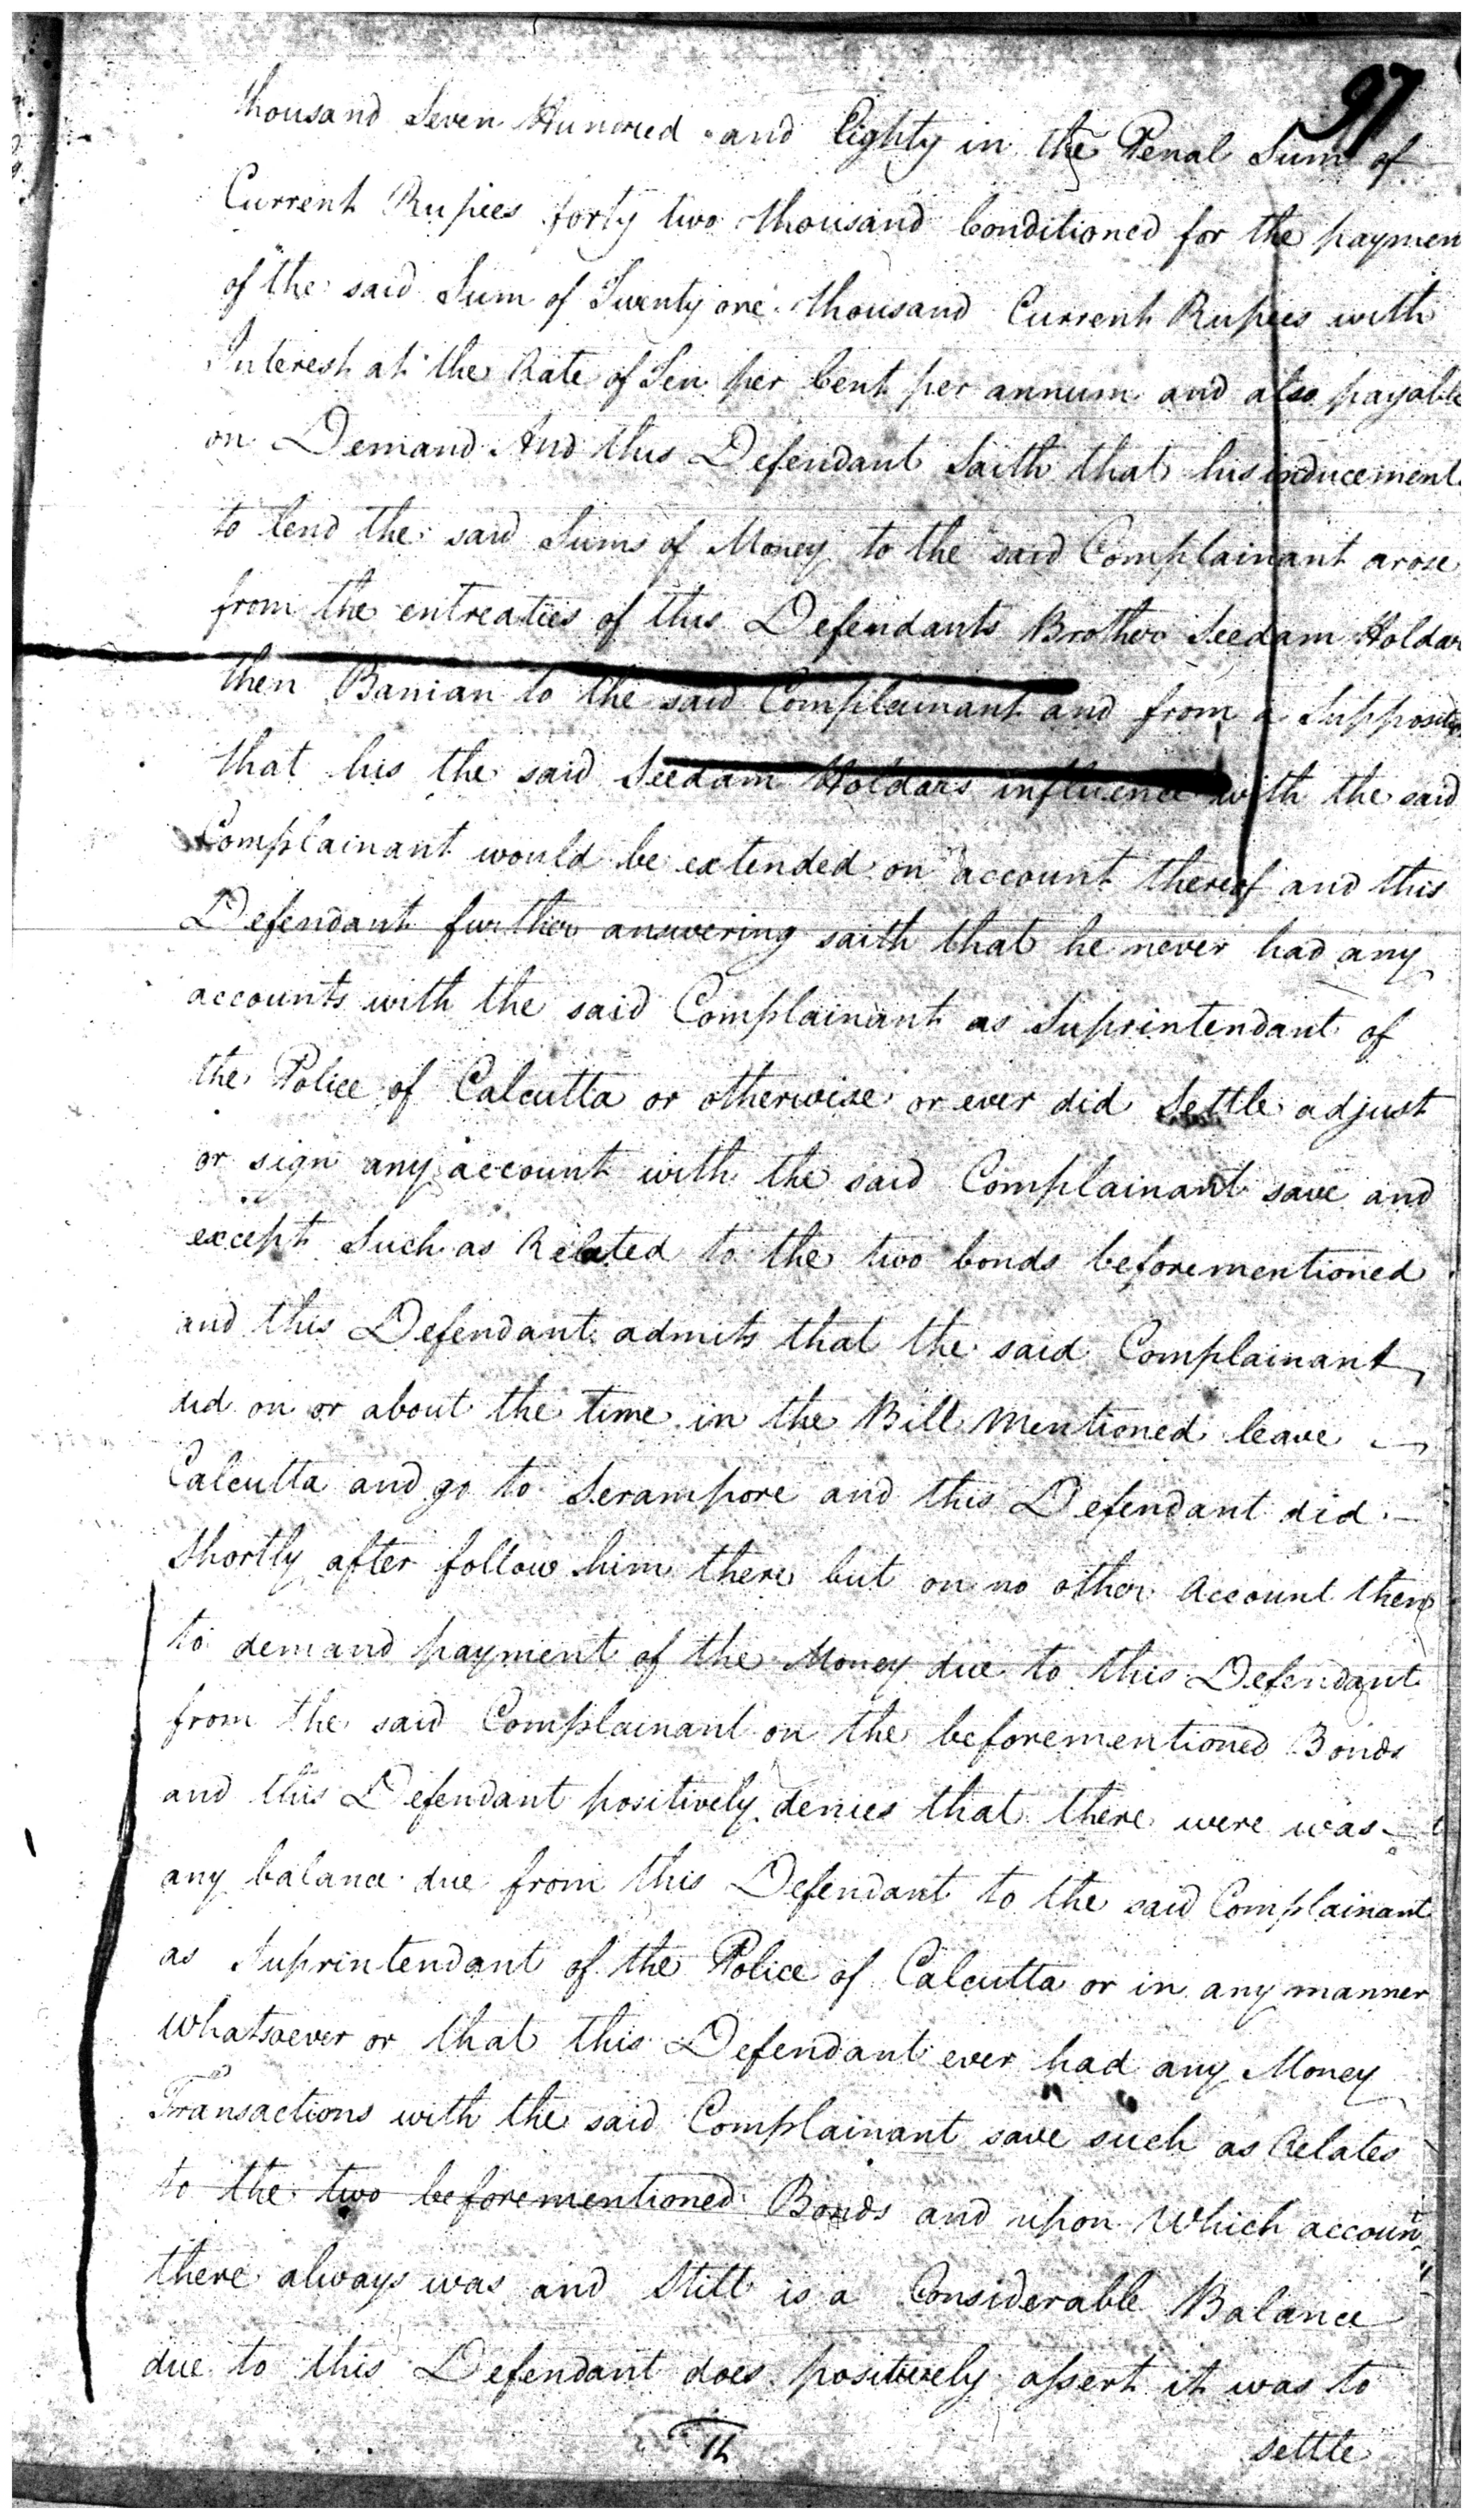 97
thousand Seven Hundred and Eighty in the Penal Sum of
Current Rupees forty two thousand Conditioned for the paymen
of the said Sum of Twenty one thousand Current Rupees with
Interest at the Rate of Ten per Cent per annum and also payable
on Demand And this Defendant Saith that his inducement
to lend the said Sums of Money to the said Complainant arose
from the entreaties of this Defendants Brother Seedam Holdar
then Banian to the said Complainant and from a Suppositi
that his the said Seedam Holdars influence with the said
Complainant would be extended on account thereof and this
Defendant further answering saith that he never had any
accounts with the said Complainant as Suprintendant of
the Police of Calcutta or otherwise or ever did Settle adjust
or sign any account with the said Complainant save and
except Such as Related to the two bonds beforementioned
and this Defendant admits that the said Complainant
did on or about the time in the Bill Mentioned leave
Calcutta and go to Serampore and this Defendant did
Shortly after follow him there but on no other Account then
to demand payment of the Money due to this Defendant
from the said Complainant on the beforementioned Bonds
and this Defendant positively denies that there were was
any balance due from this Defendant to the said Complainant
as Suprintendant of the Police of Calcutta or in any manner
Whatsoever or that this Defendant ever had any Money
Transactions with the said Complainant save such as Relates
to the two beforementioned Bonds and upon Which accoun
there always was and Still is a Considerable Balance
due to this Defendant does positively assert it was to
settle